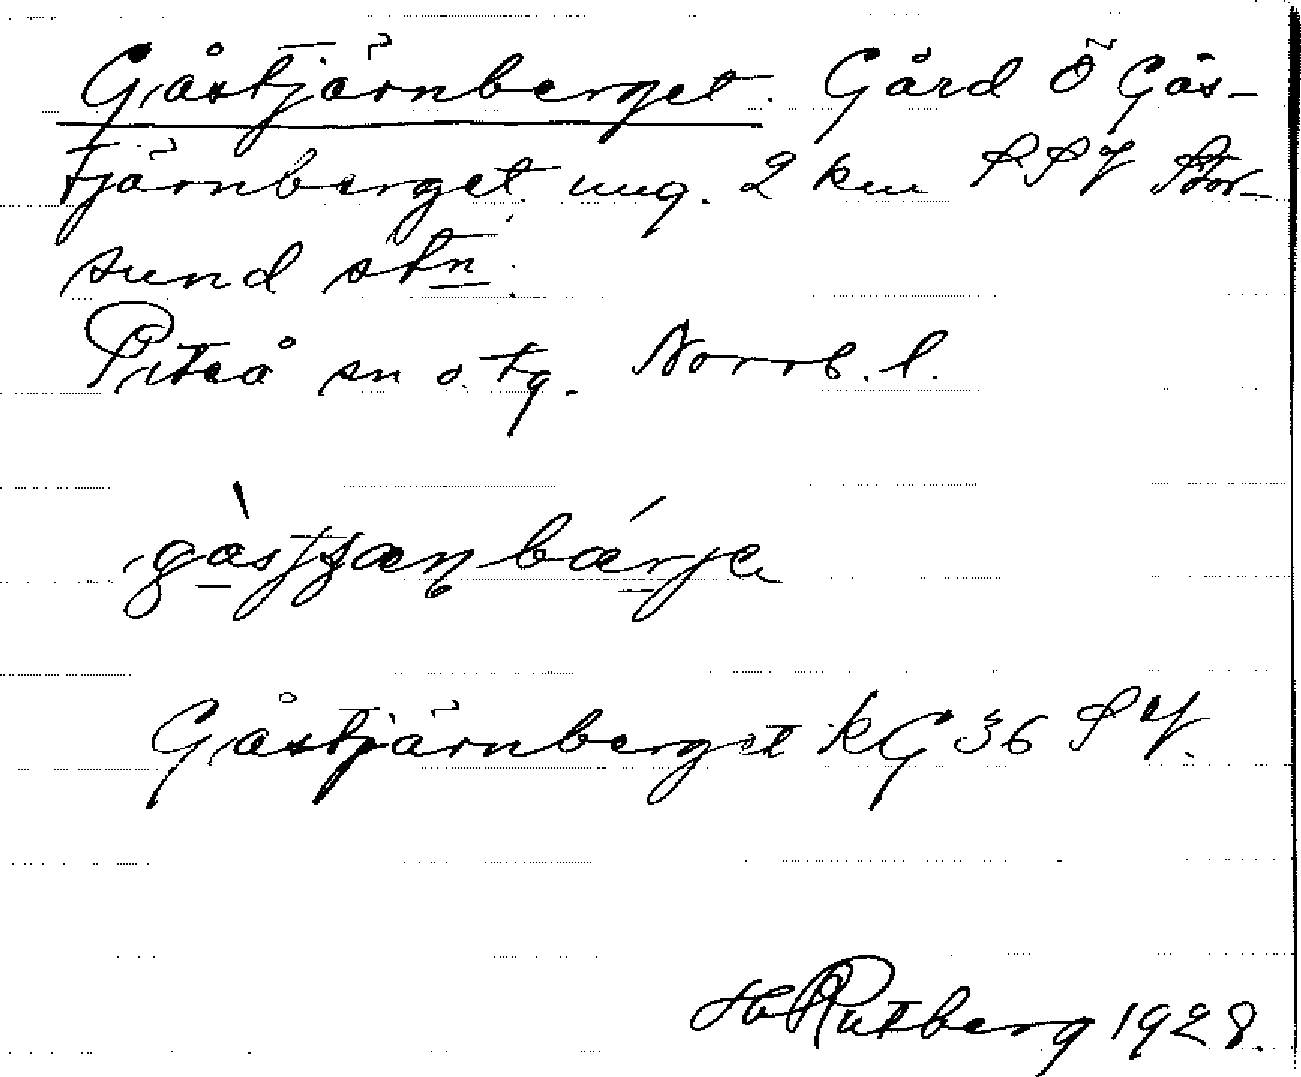 Gåstjärnberget. Gård Ö Gås-
tjärnberget ung. 2 km SSV Stor-
sund stn.
Piteå sn o. tg. Norrb. l.
Gåstjärnberget kG 36 SV.
H Rutberg 1928.